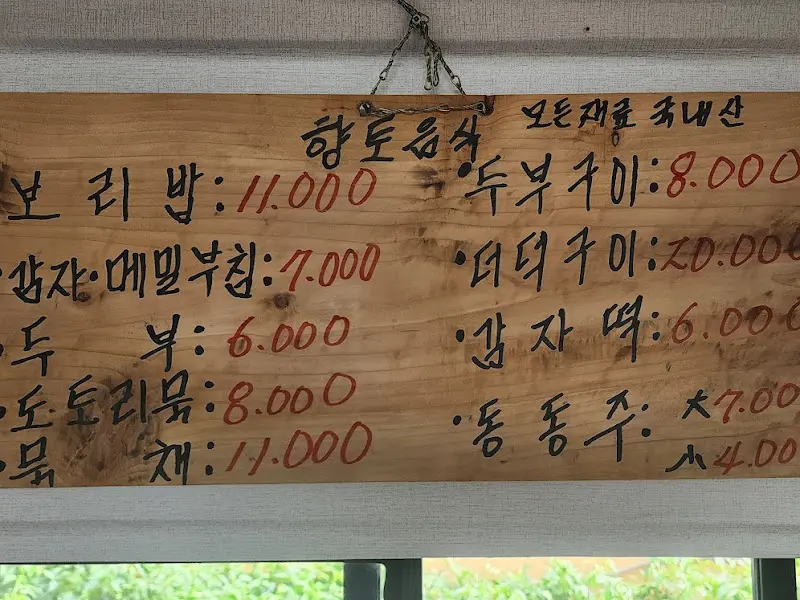 향토음식 모든재료 국내산
보리밥: 11.000
·감자·메밀부침: 7.000
·두부: 6.000
·도토리묵: 8.000
·묵채: 11.000
·두부구이: 8.000
·더덕구이: 20.000
·감자떡: 6.000
·동동주: 大 7.00
小 4.00